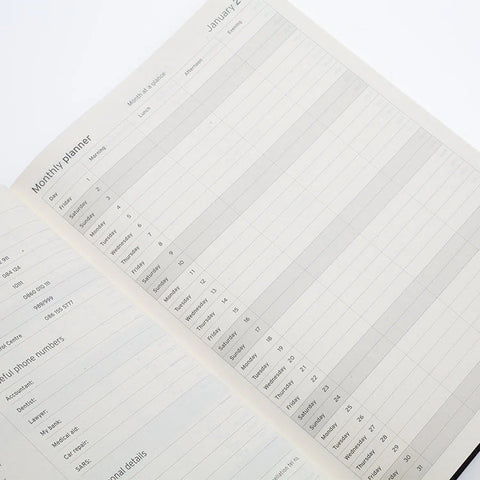 January 2
Month at a glance
Monthly planner
Day Morning Lunch Afternoon Evening
Friday 1
Saturday 2
Sunday 3
Monday 4
Tuesday 5
Wednesday 6
Thursday 7
Friday 8
Saturday 9
Sunday 10
Monday 11
Tuesday 12
Wednesday 13
Thursday 14
Friday 15
Saturday 16
Sunday 17
Monday 18
Tuesday 19
Wednesday 20
Thursday 21
Friday 22
Saturday 23
Sunday 24
Monday 25
Tuesday 26
Wednesday 27
Thursday 28
Friday 29
30
31
911
084 124
10111
0860 010 111
086 155 5777
Centre
eful phone numbers
Accountant:
Dentist:
Lawyer:
My bank:
Medical aid:
Car repair:
SARS:
onal details